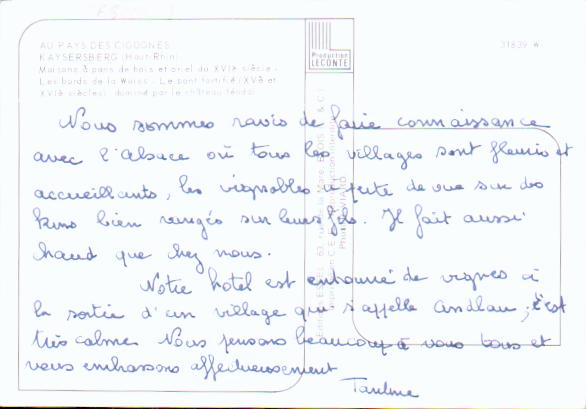 AU PAYS DES CIGOGNES
KAYSERSBERG (Haut-Rhin)
Maisons à pans de bois et oriel du XVIè siècle -
Les bords de la Weiss - Le pont fortifié (XVè et
XVIè siècles) dominé par le château féodal
Production
LECONTE
31839 A
Nous sommes ravis de faire connaissance
avec l'Alsace où tous les villages sont fleuris et
accueillants, les vignobles à perte de vue sur des
kms bien rangés sur leurs fils. Il fait aussi
chaud que chez nous.
Notre hotel est entouré de vignes à
la sortie d'un village qui s'appelle Andlau, c'est
très calme. Nous pensons beaucoup à vous tous et
vous embrassons affectueusement